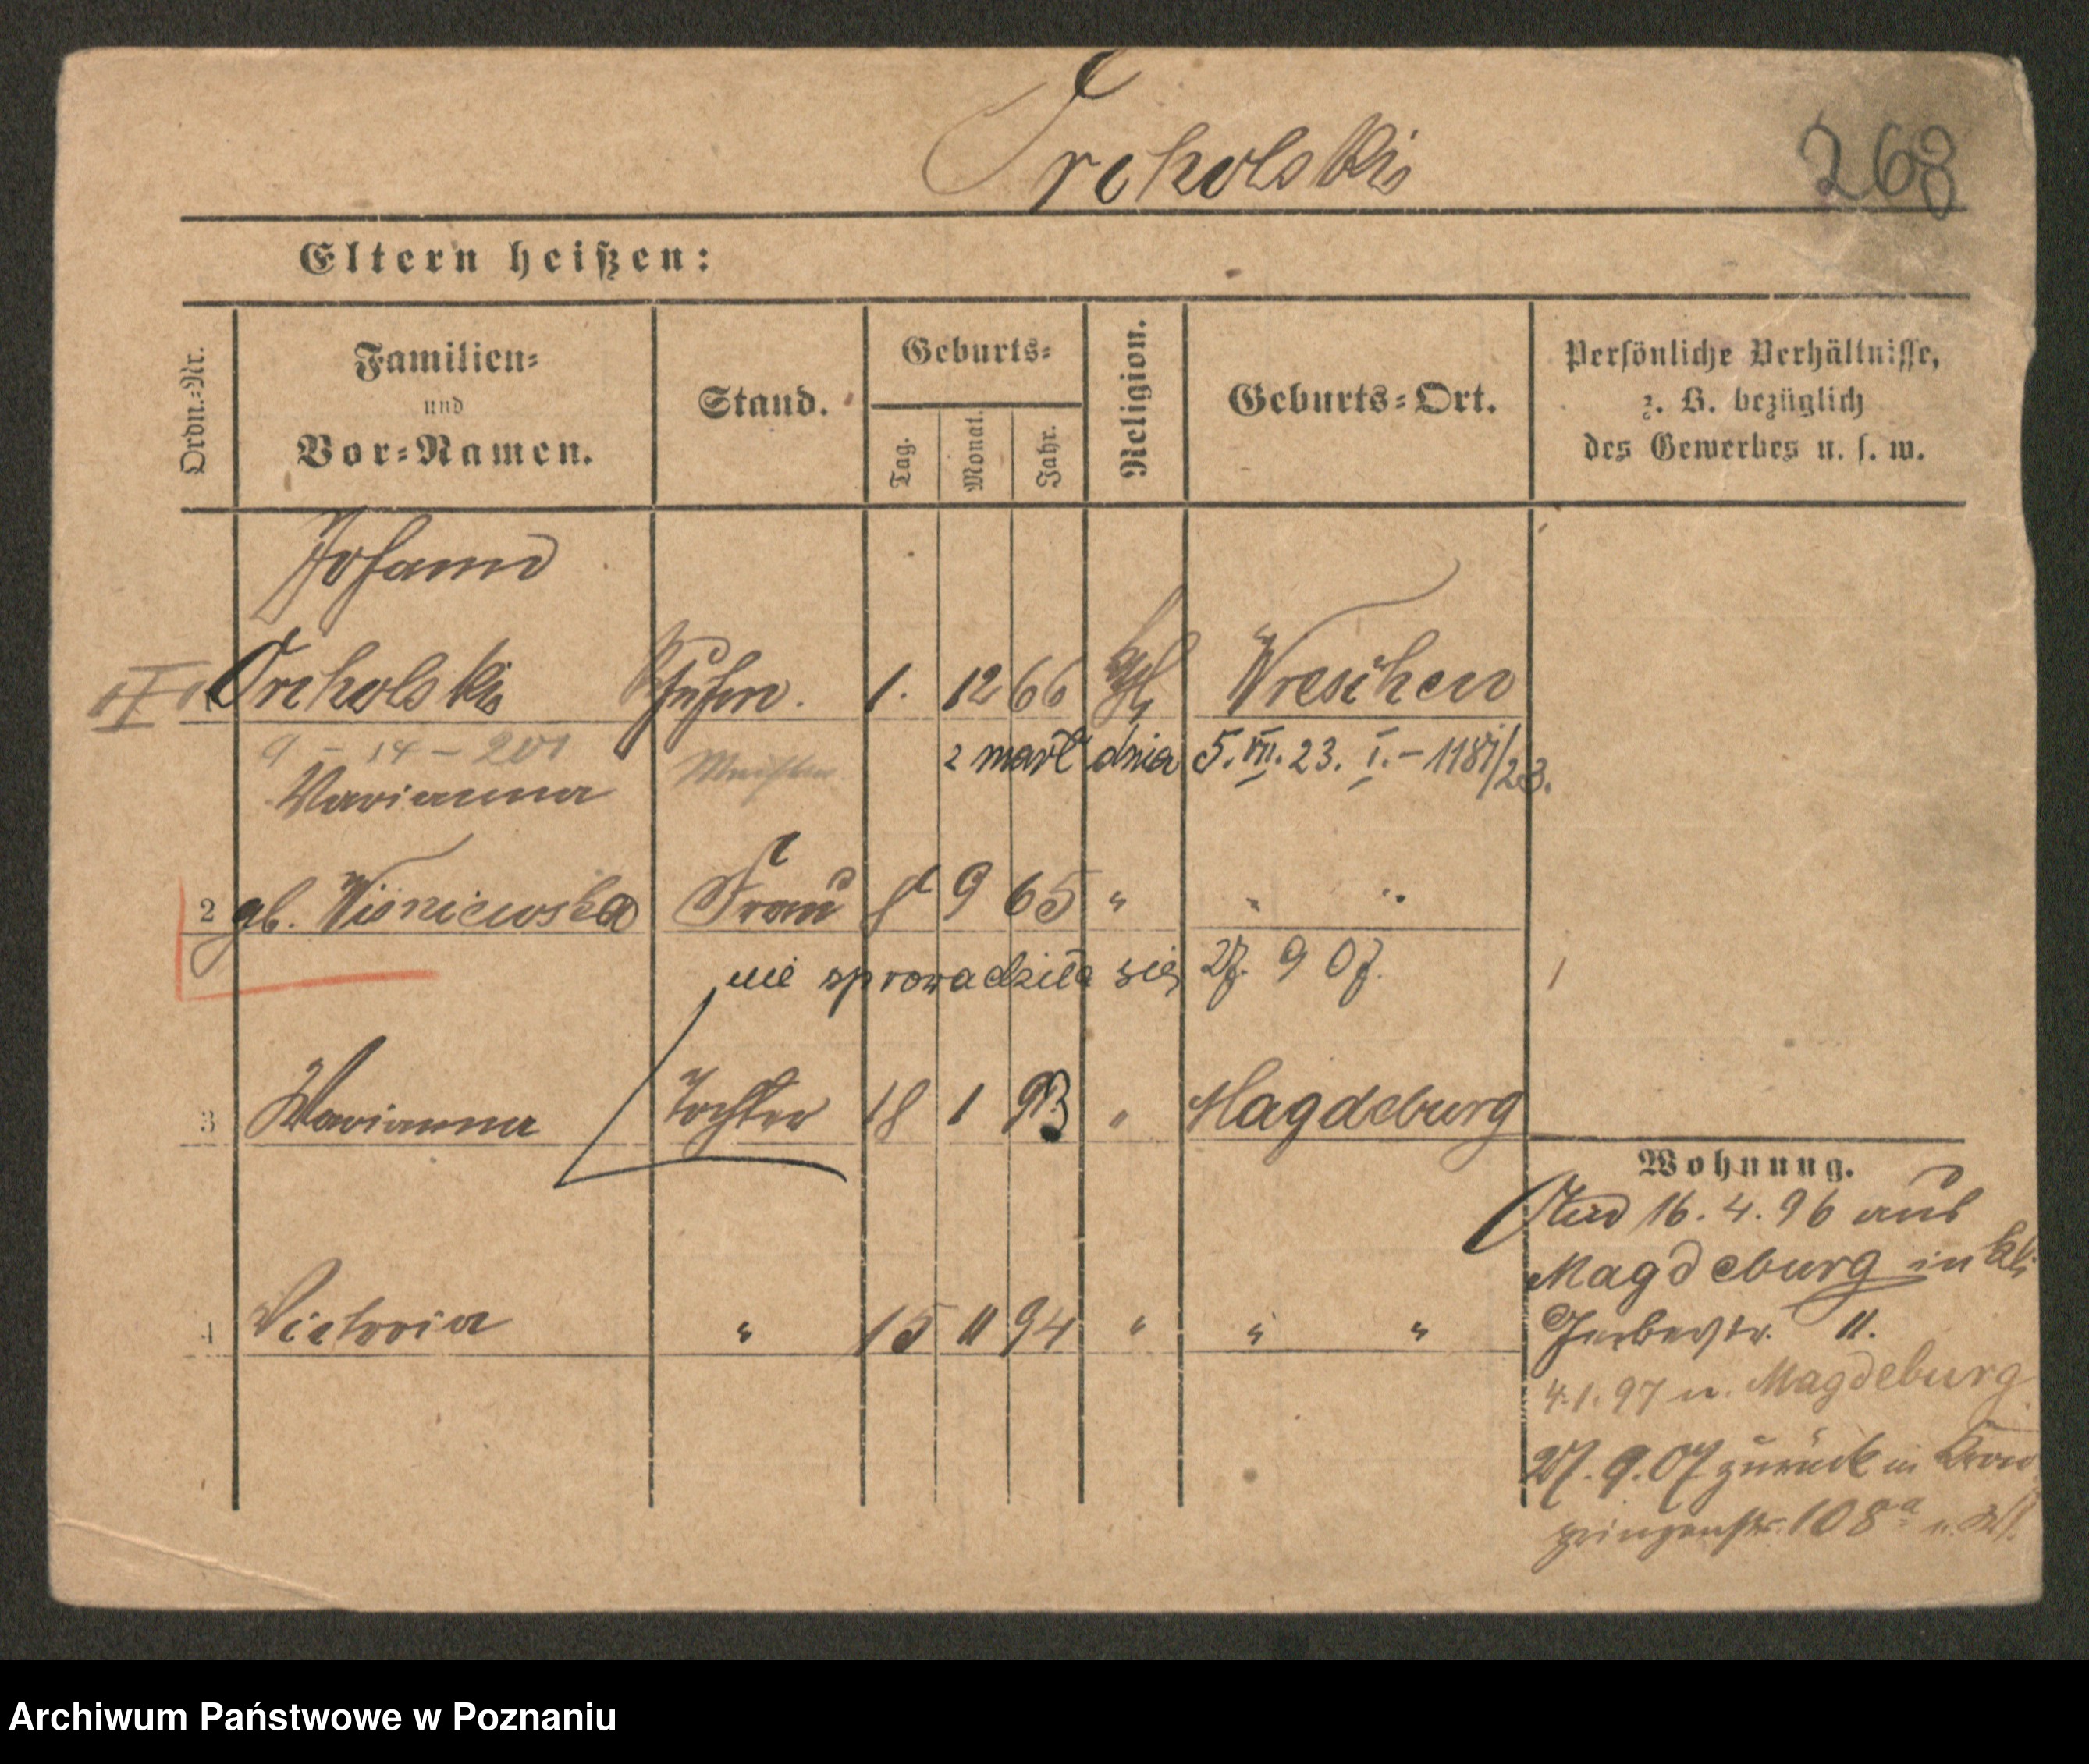 Orcholski
268
Eltern heißen:
Ordn.-Nr.
Familien-
und
Vor-Namen.
Stand.
Geburts-
Tag.
Monat.
Jahr.
Religion.
Geburts-Ort.
Persönliche Verhältnisse,
z. B. bezüglich
des Gewerbes u. s. w.
Johann
Orcholski 1. 12 66 kth Wreschen
9 - 14 - 201
zmarł dnia 5. VII. 23. I. - 1181/23.
Marianna
2 gb. Wisniewska Frau 8 9 65 " " "
nie sprowadziła się 27. 9 07.
3 Marianna Tochter 18 1 93 " Magdeburg
4 Victoria " 15 11 94 " " "
Wohnung.
16. 4. 96 aus
Magdeburg in
11.
4.1.97 n. Magdeburg
27. 9. 07 zurück in Kron
prinzenstr. 108a
Archiwum Państwowe w Poznaniu